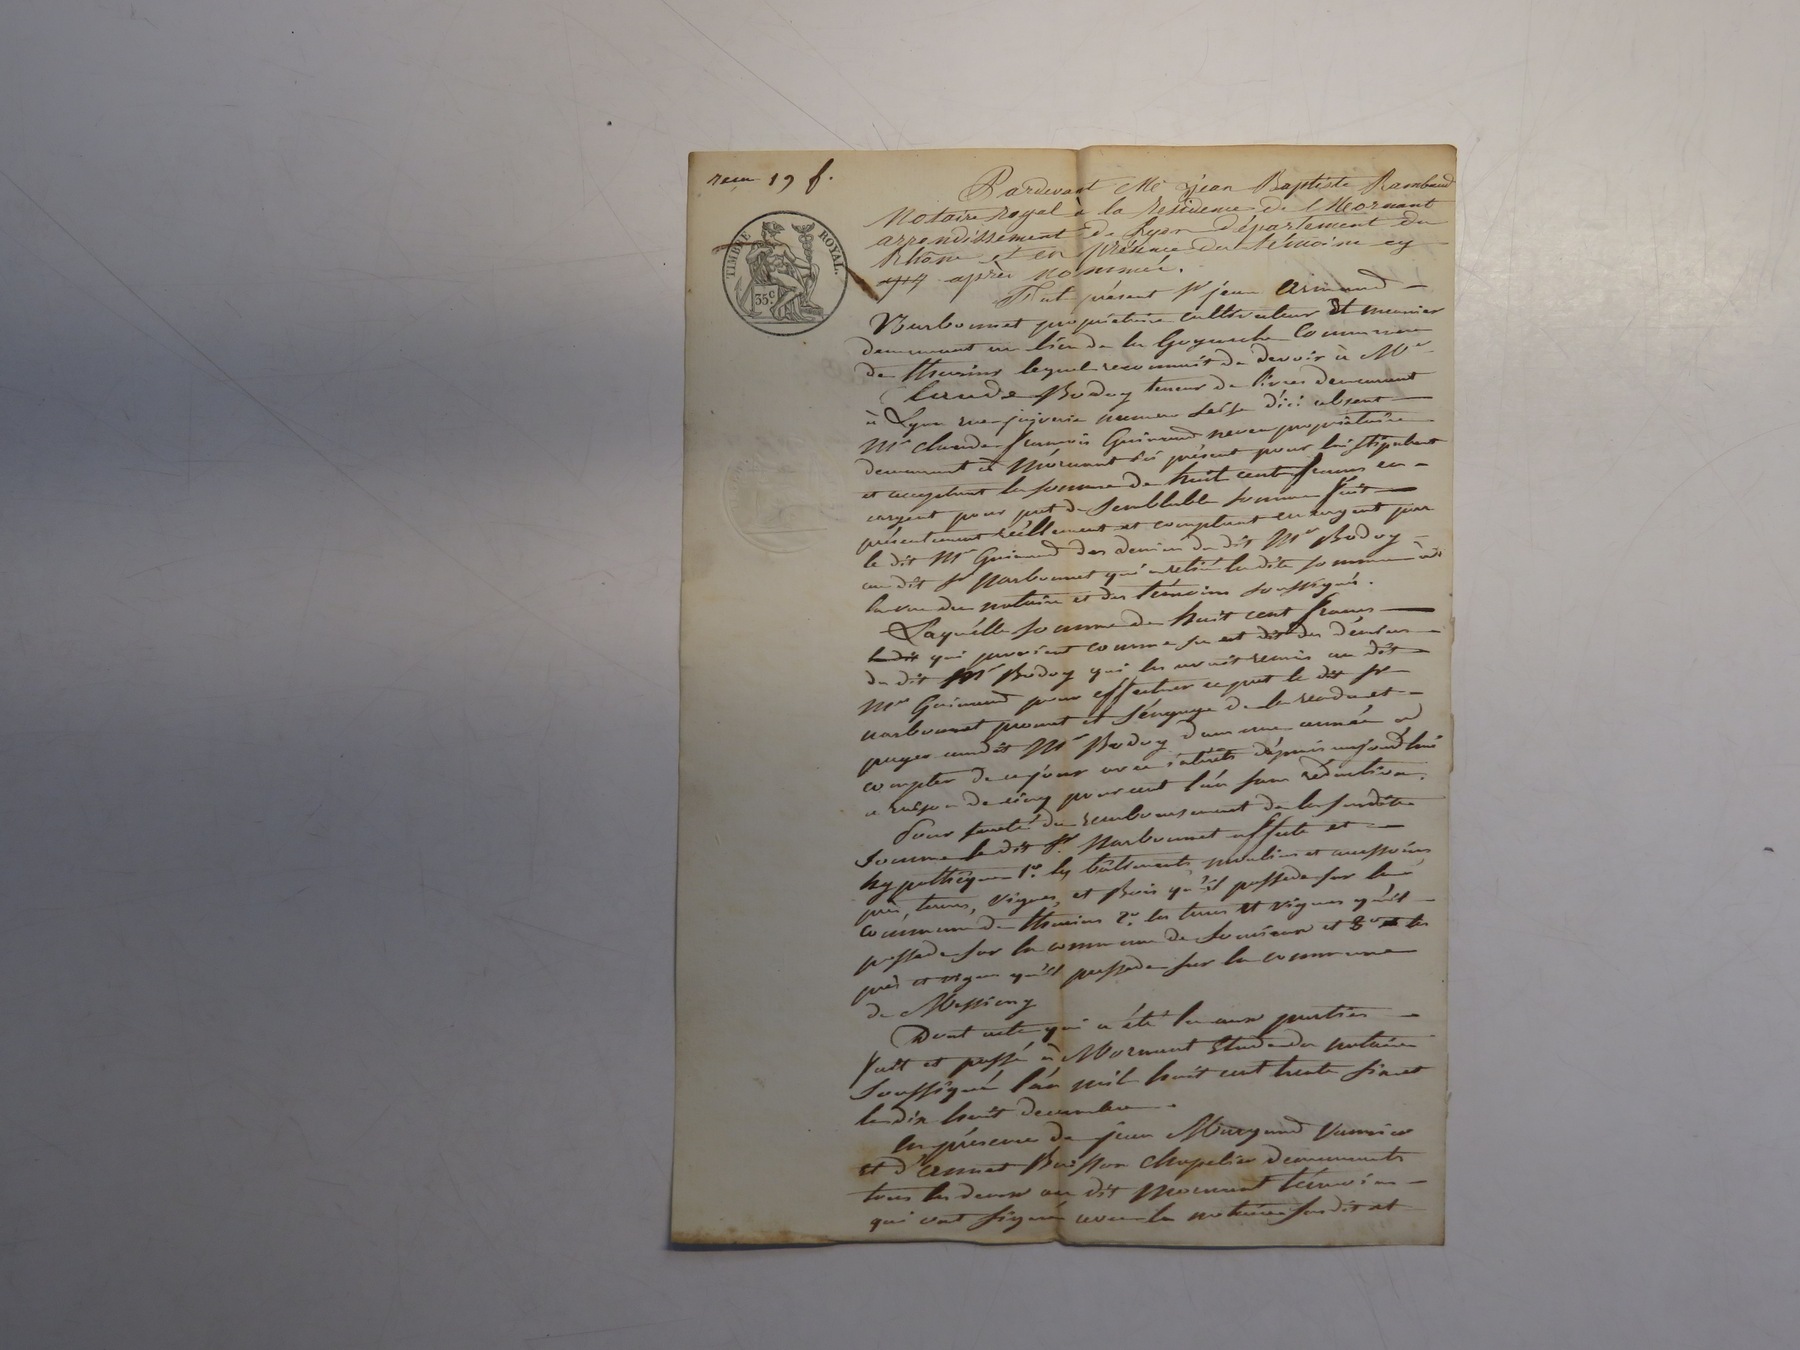 reçu 19 f.
TIMBRE ROYAL.
35c
Pardevant Me Jean Baptiste Rambaud
Notaire royal à la residence de Mornant
arrondissement de Lyon département du
Rhône et en présence des témoins cy
après nommés.
Fut présent sr jean Armand
Narbonnet propriétaire cultivateur et meunier
demeurant au lieu de la commune
de thurins lequel reconnait de devoir à Mr
Claude Bodoy teneur de livres demeurant
à Lyon rue juiverie numero seize d'ici absent
Mr claude françois Guinand neveu propriétaire
demeurant à Mornant ici présent pour lui stipulant
et acceptant la somme de huit cent francs en
argent pour pret de semblable somme fait
présentement réellement et comptant en argent par
le dit Mr Guinand des deniers du dit Mr Bodoy
au dit sr Narbonnet qui a retiré la dite somme à
la vue du notaire et des témoins soussignés.
Laquelle somme de huit cent francs
ledit qui provient comme sus est dit des deniers
du dit Mr Bodoy qui les avoit remis au dit
Mr Guinand pour effectuer ce pret le dit sr
narbonnet promet et s'engage de la rendre et
payer audit Mr Bodoy dans une année à
compter de ce jour avec intérêts depuis aujourd'hui
a raison de cinq pour cent l'an sans réduction.
Pour sureté du remboursement de la susdite
somme le dit sr Narbonnet affecte et
hypothèque 1o. les bâtiments moulins et aussoires
prés, terres, vignes, et Bois qu'il possede sur la
commune de thurins 2o. les terres et vignes qu'il
possede sur la commune de Soucieux et 3o les
prés et vignes qu'il possede sur la commune
de Messimy
Dont acte qui a été lu aux parties
fait et passé à Mornant Etude du notaire
soussigné l'an mil huit cent trente six et
le dix huit decembre.
En présence de jean Margand vannier
et d'annet Buisson chapelier demeurants
tous les deux au dit Mornant témoins
qui ont signé avec le notaire susdit et